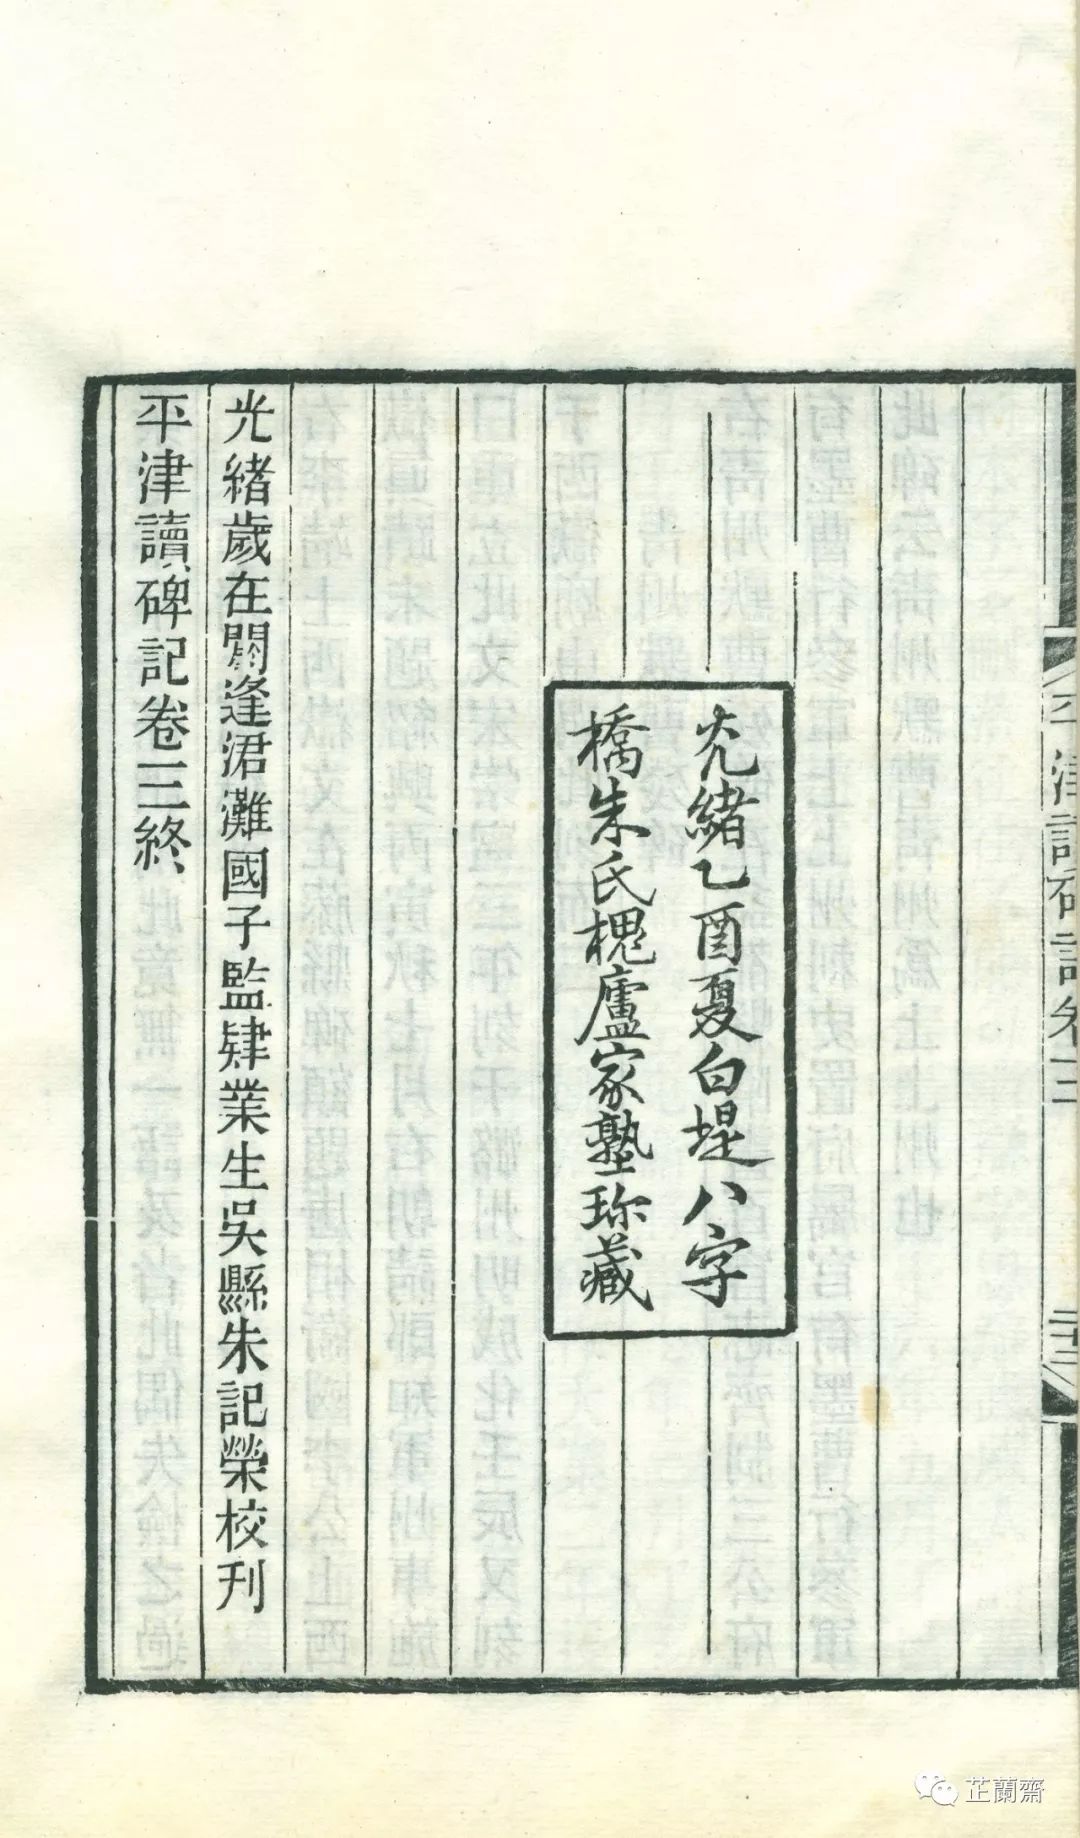 平津讀碑記卷三
二十二
光緒乙酉夏白堤八字
橋朱氏槐廬家塾珍藏
光緒歲在閼逢涒灘國子監肄業生吳縣朱記榮校刊
平津讀碑記卷三終
芷蘭齋